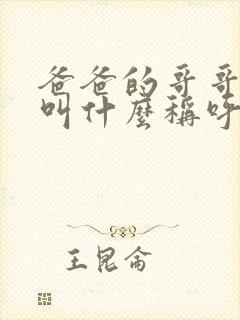 爸爸的哥哥
叫什麼稱呼
王昆侖